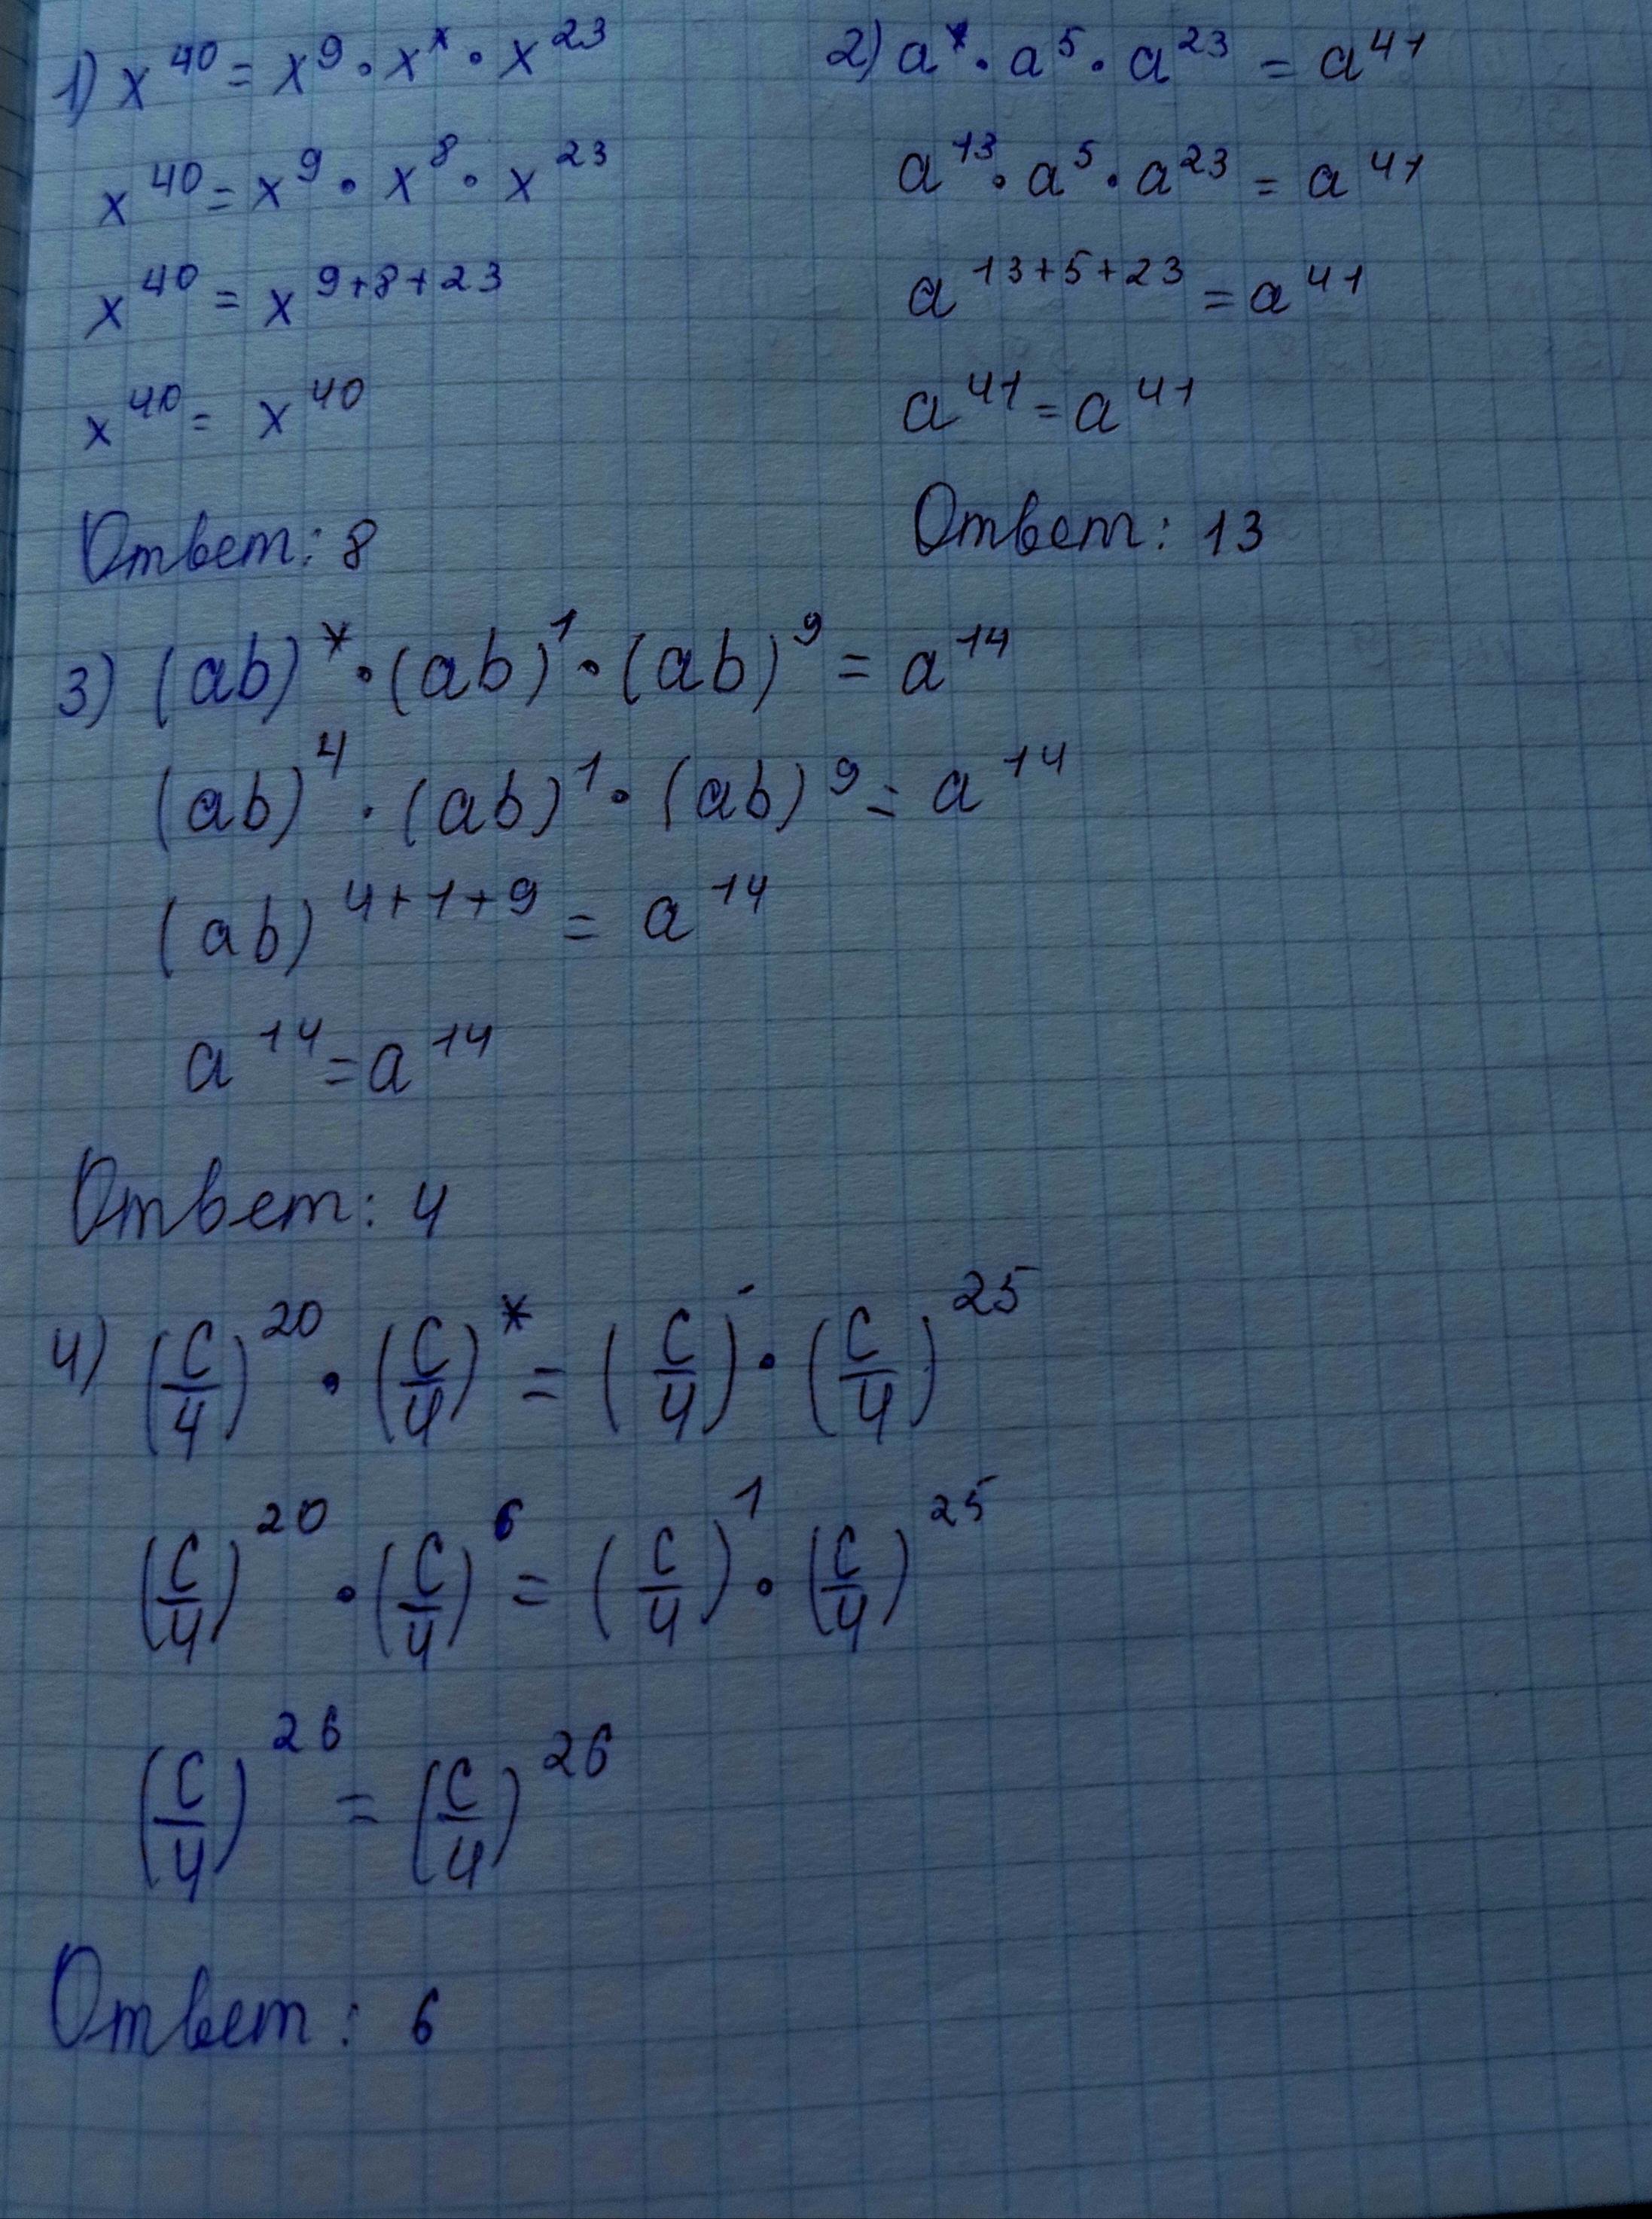 1) x^40 = x^9 · x^* · x^23
x^40 = x^9 · x^8 · x^23
x^40 = x^9+8+23
x^40 = x^40
Ответ: 8
2) a^* · a^5 · a^23 = a^41
a^13 · a^5 · a^23 = a^41
a^13+5+23 = a^41
a^41 = a^41
Ответ: 13
3) (ab)^* · (ab)^1 · (ab)^9 = a^14
(ab)^4 · (ab)^1 · (ab)^9 = a^14
(ab)^4+1+9 = a^14
a^14 = a^14
Ответ: 4
4) (c/4)^20 · (c/4)^* = (c/4) · (c/4)^25
(c/4)^20 · (c/4)^6 = (c/4)^1 · (c/4)^25
(c/4)^26 = (c/4)^26
Ответ: 6